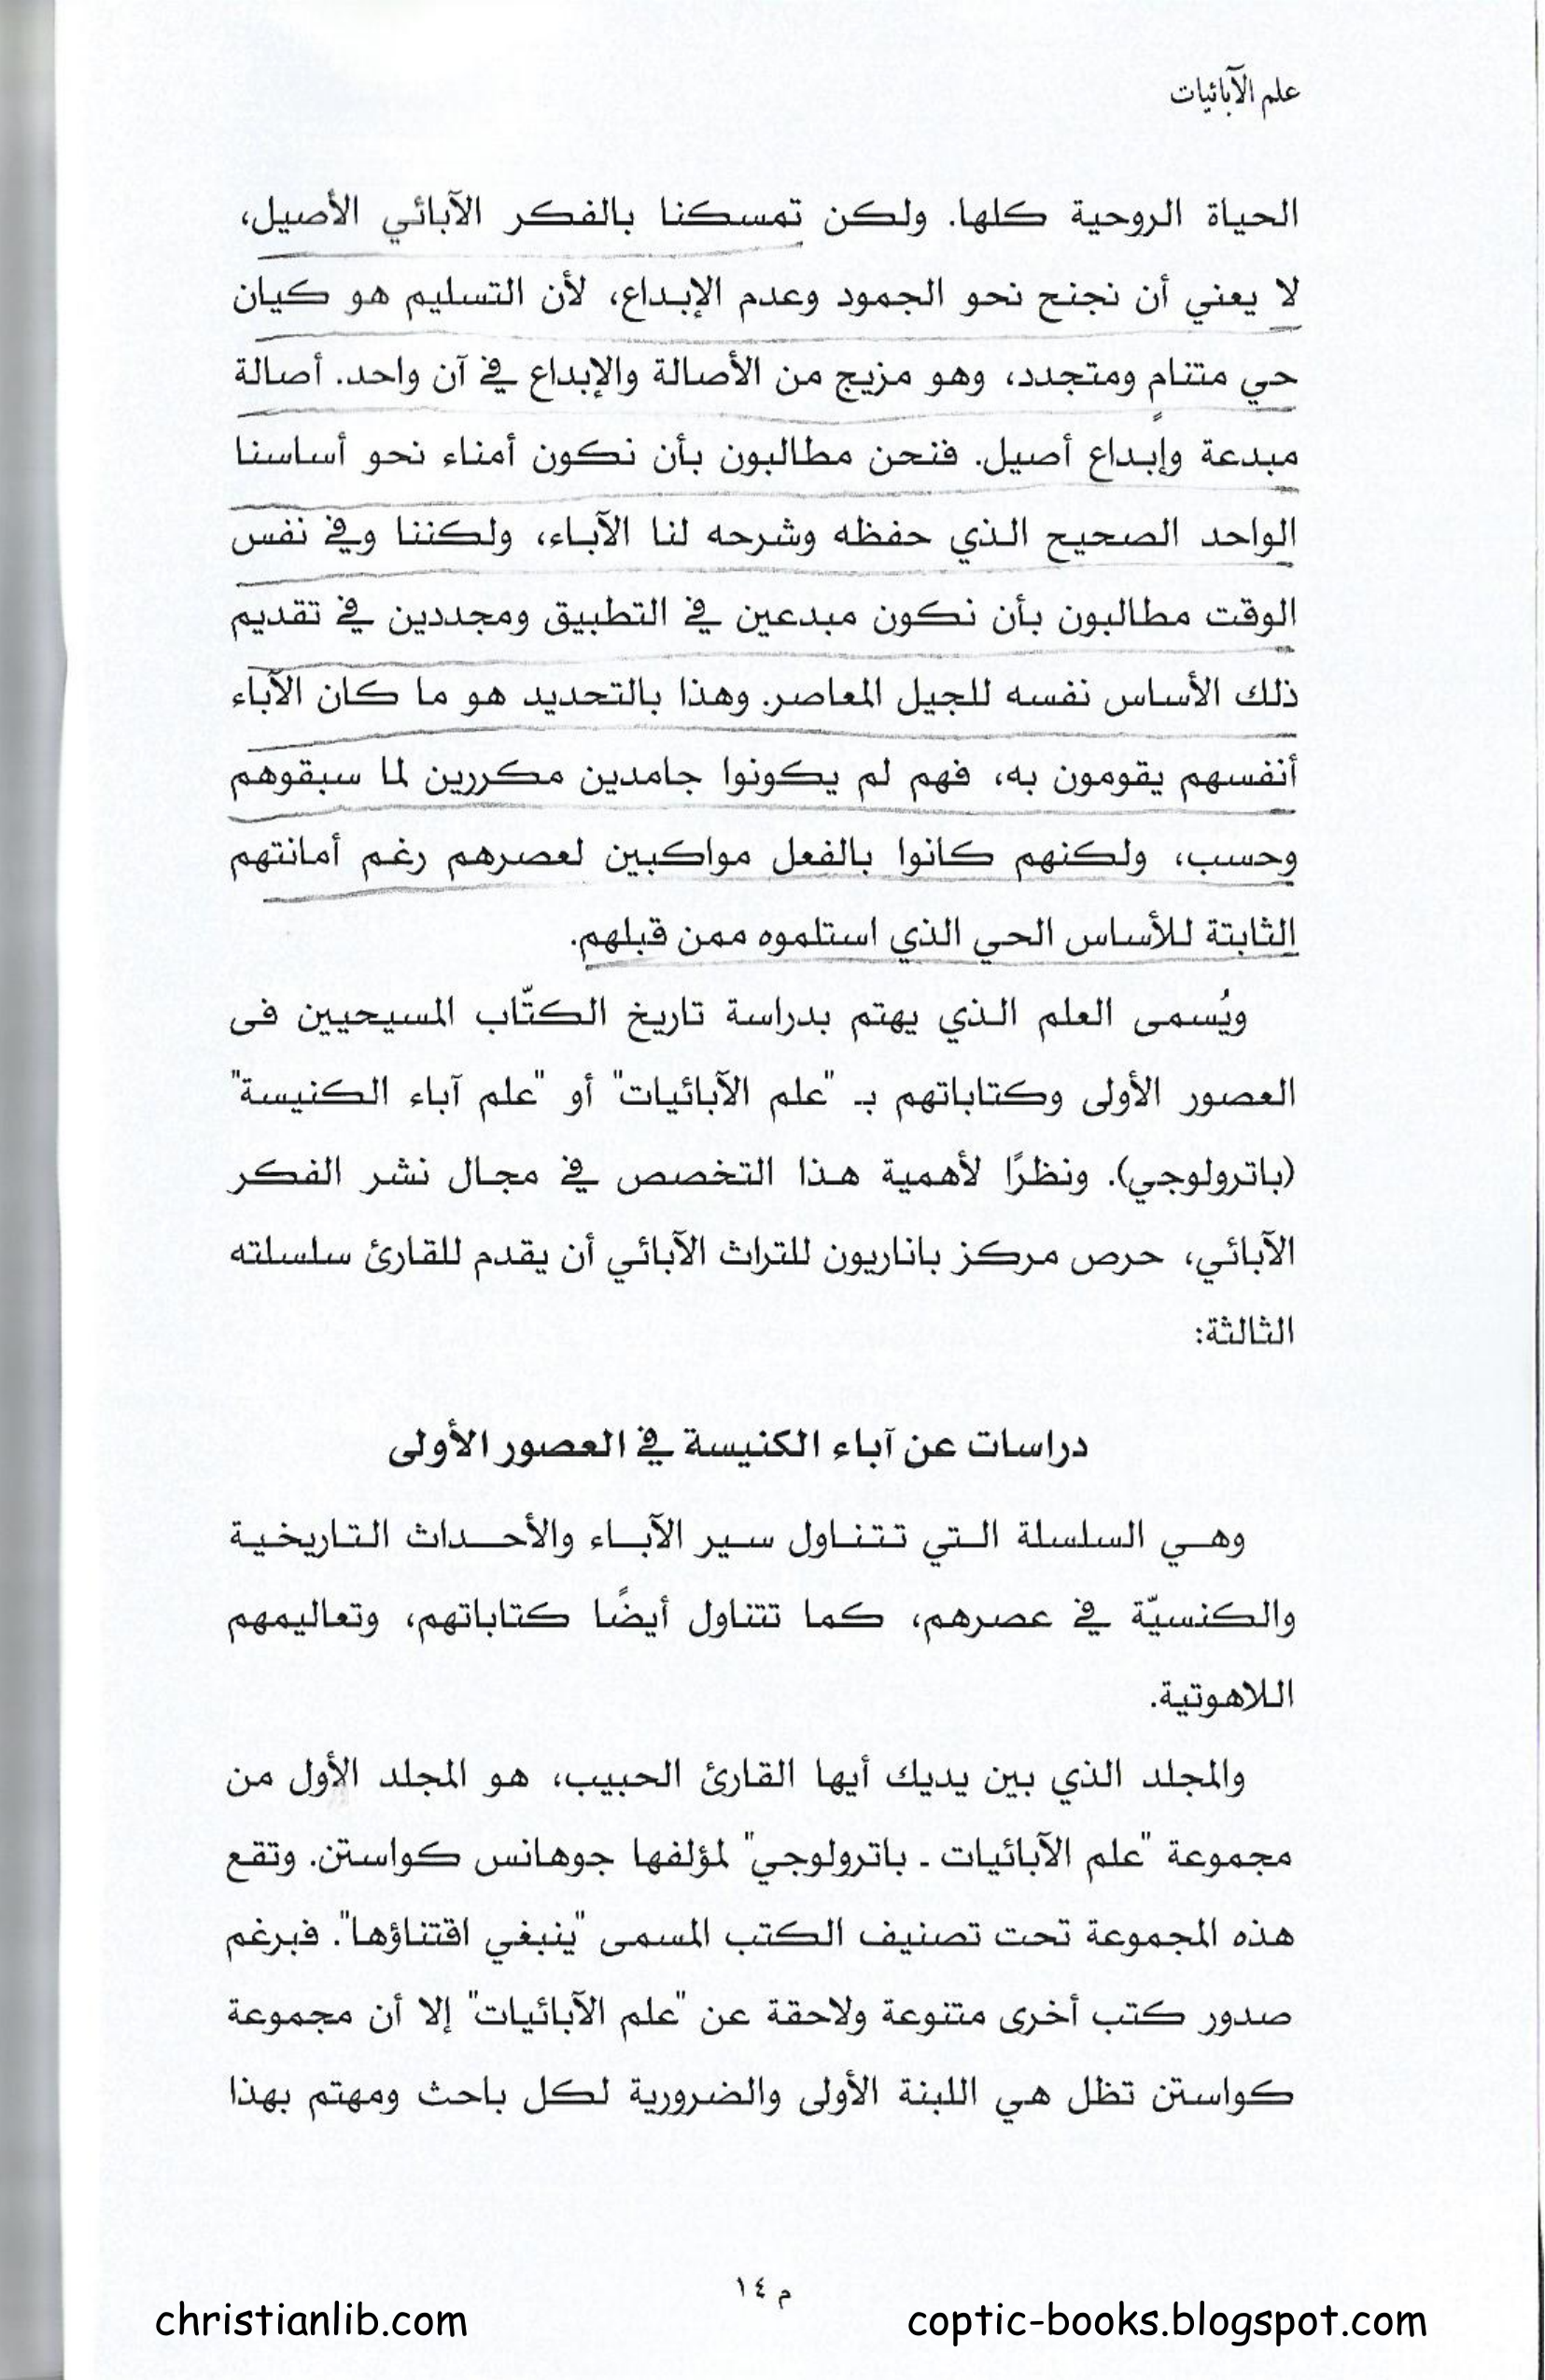 علم الآبائيات
الحياة الروحية كلها. ولكن تمسكنا بالفكر الآبائي الأصيل،
لا يعني أن نجنح نحو الجمود وعدم الإبداع، لأن التسليم هو كيان
حي متنامٍ ومتجدد، وهو مزيج من الأصالة والإبداع في آن واحد. أصالة
مبدعة وإبداع أصيل. فنحن مطالبون بأن نكون أمناء نحو أساسنا
الواحد الصحيح الذي حفظه وشرحه لنا الآباء، ولكننا وفي نفس
الوقت مطالبون بأن نكون مبدعين في التطبيق ومجددين في تقديم
ذلك الأساس نفسه للجيل المعاصر. وهذا بالتحديد هو ما كان الآباء
أنفسهم يقومون به، فهم لم يكونوا جامدين مكررين لما سبقوهم
وحسب، ولكنهم كانوا بالفعل مواكبين لعصرهم رغم أمانتهم
الثابتة للأساس الحي الذي استلموه ممن قبلهم.
ويُسمى العلم الذي يهتم بدراسة تاريخ الكتّاب المسيحيين فى
العصور الأولى وكتاباتهم بـ "علم الآبائيات" أو "علم آباء الكنيسة"
(باترولوجي). ونظرًا لأهمية هذا التخصص في مجال نشر الفكر
الآبائي، حرص مركز باناريون للتراث الآبائي أن يقدم للقارئ سلسلته
الثالثة:
دراسات عن آباء الكنيسة في العصور الأولى
وهي السلسلة التي تتناول سير الآباء والأحداث التاريخية
والكنسيّة في عصرهم، كما تتناول أيضًا كتاباتهم، وتعاليمهم
اللاهوتية.
والمجلد الذي بين يديك أيها القارئ الحبيب، هو المجلد الأول من
مجموعة "علم الآبائيات ـ باترولوجي" لمؤلفها جوهانس كواستن. وتقع
هذه المجموعة تحت تصنيف الكتب المسمى "ينبغي اقتناؤها". فبرغم
صدور كتب أخرى متنوعة ولاحقة عن "علم الآبائيات" إلا أن مجموعة
كواستن تظل هي اللبنة الأولى والضرورية لكل باحث ومهتم بهذا
م ١٤
christianlib.com
coptic-books.blogspot.com